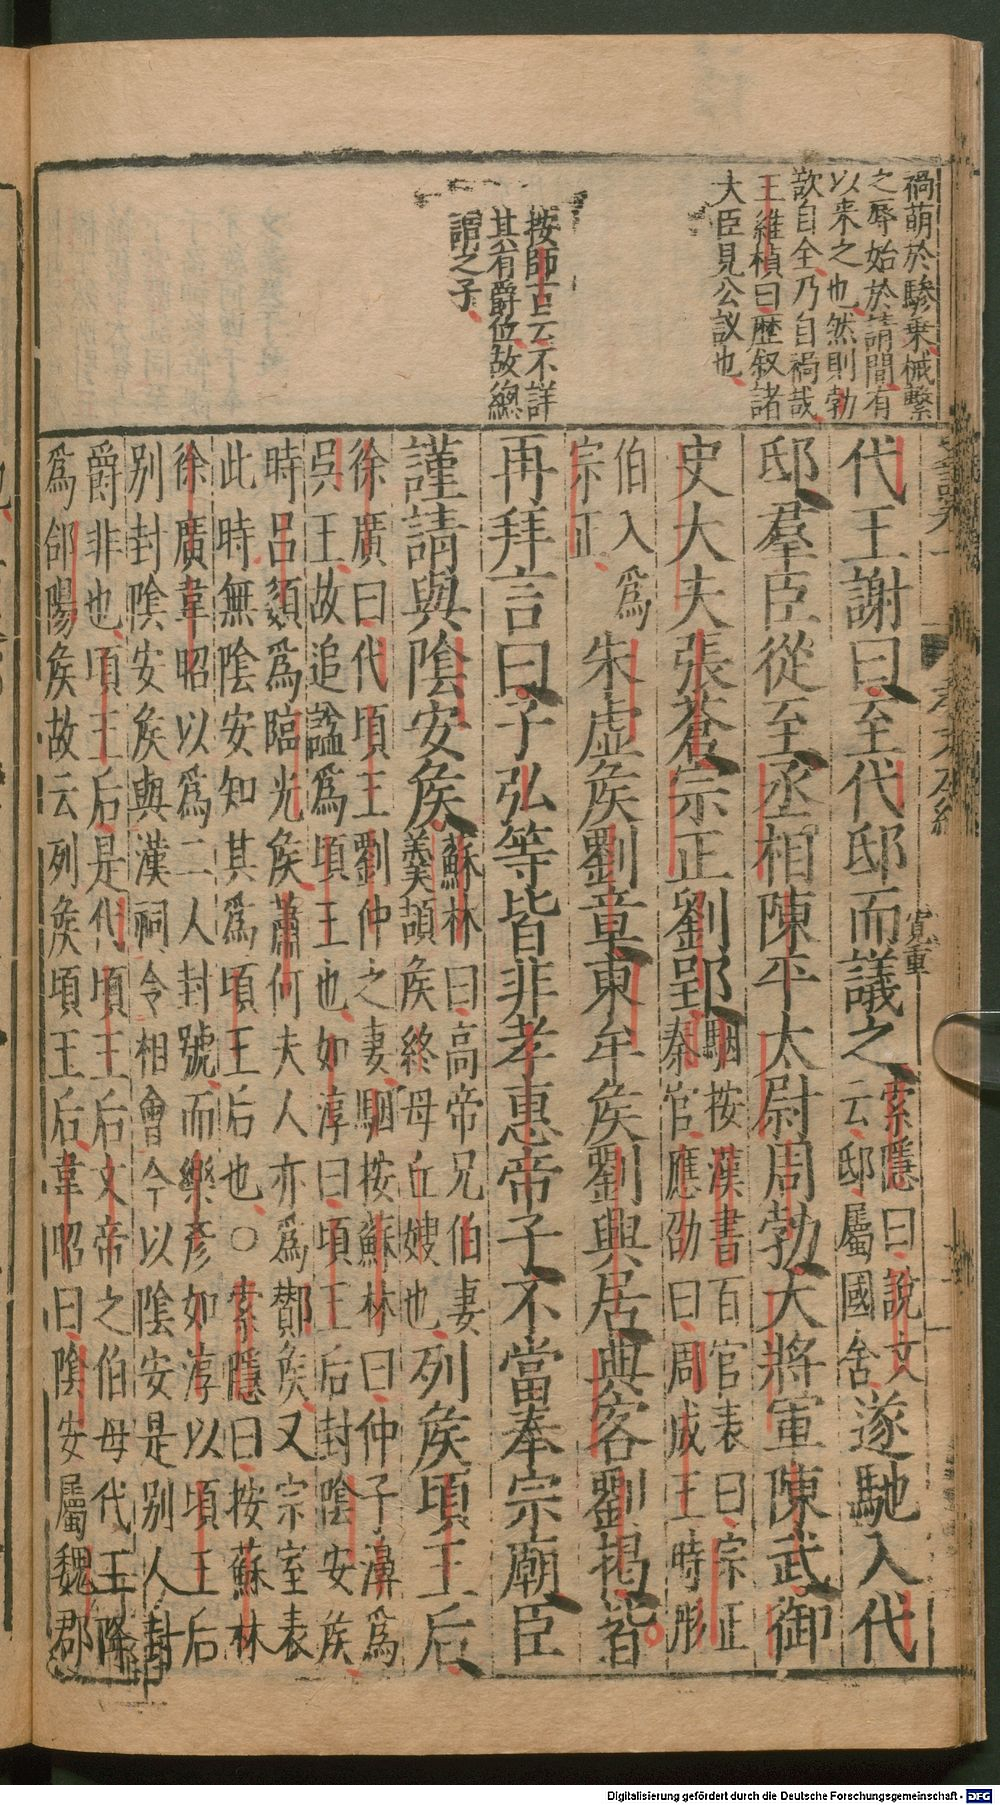 禍萌於驂乗械繫
之辱始於請間有
以来之也然則勃
歆自全乃自禍哉
王維楨曰歴叙諸
大臣見公議也
按師古云不詳
其有爵位故總
謂之子
代王謝曰至代邸而議之索隱曰說文
云邸屬國舍遂馳入代
邸羣臣從至丞相陳平太尉周勃大將軍陳武御
史大夫張蒼宗正劉郢駰按漢書百官表曰宗正
秦官應劭曰周成王時彤
伯入爲
宗正朱虚矦劉章東牟矦劉興居典客劉揭皆
再拜言曰子弘等皆非孝惠帝子不當奉宗廟臣
謹請與陰安矦蘇林曰高帝兄伯妻
羹頡矦終母丘嫂也列矦頃王后
徐廣曰代頃王劉仲之妻駰按蘇林曰仲子濞爲
吳王故追謚爲頃王也如淳曰頃王后封陰安矦
時吕嬃爲臨光矦蕭何夫人亦爲酇矦又宗室表
此時無陰安知其爲頃王后也○索隱曰按蘇林
徐廣韋昭以爲二人封號而樂彦如淳以頃王后
别封陰安矦與漢祠令相會今以陰安是别人封
爵非也頃王后是代頃王后文帝之伯母代王降
爲郃陽矦故云列矦頃王后韋昭曰陰安屬魏郡
寛重
Digitalisierung gefördert durch die Deutsche Forschungsgemeinschaft - DFG